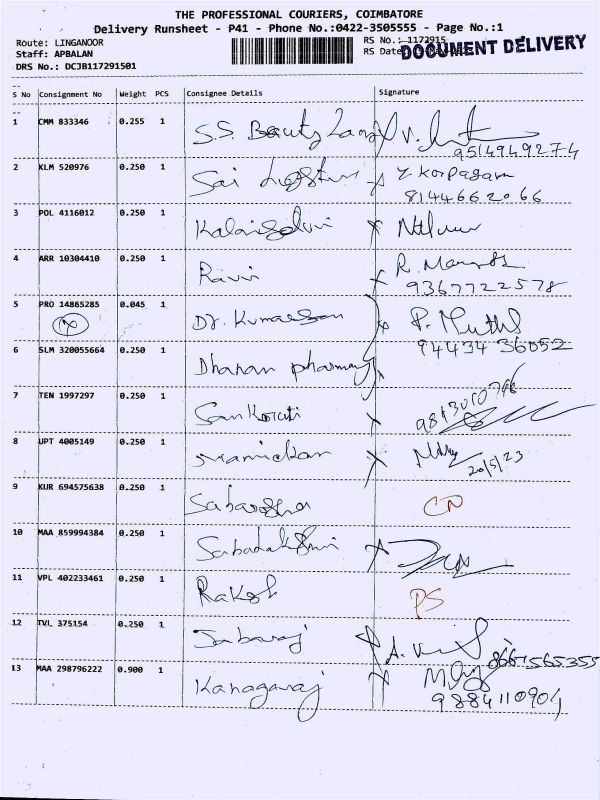 THE PROFESSIONAL COURIERS, COIMBATORE
Delivery Runsheet - P41 - Phone No.:0422-3505555 - Page No.:1
Route: LINGANOOR
RS No.: 1172915
Staff: APBALAN
RS Date:
DOCUMENT DELIVERY
DRS No.: DCJB117291501
S No Consignment No Weight PCS Consignee Details Signature
1 CMM 833346 0.255 1 S.S. Beauty
9514949274
2 KLM 520976 0.250 1 Sai
Y. Korpagam
8144662066
3 POL 4116012 0.250 1 Kalaiselvi
4 ARR 10304410 0.250 1 Ravi R.
9367722578
5 PRO 14865285 0.045 1 Dr. Kumaresan P. Muthu
94434 36052
6 SLM 320055664 0.250 1 Dhanam pharmacy
7 TEN 1997297 0.250 1
8 UPT 4005149 0.250 1 Manickam
20/5/23
9 KUR 694575638 0.250 1 CN
10 MAA 859994384 0.250 1
11 VPL 402233461 0.250 1 Rakesh PS
12 TVL 375154 0.250 1 Jabaraj
8667565355
13 MAA 298796222 0.900 1 Kanagaraj
9884110904